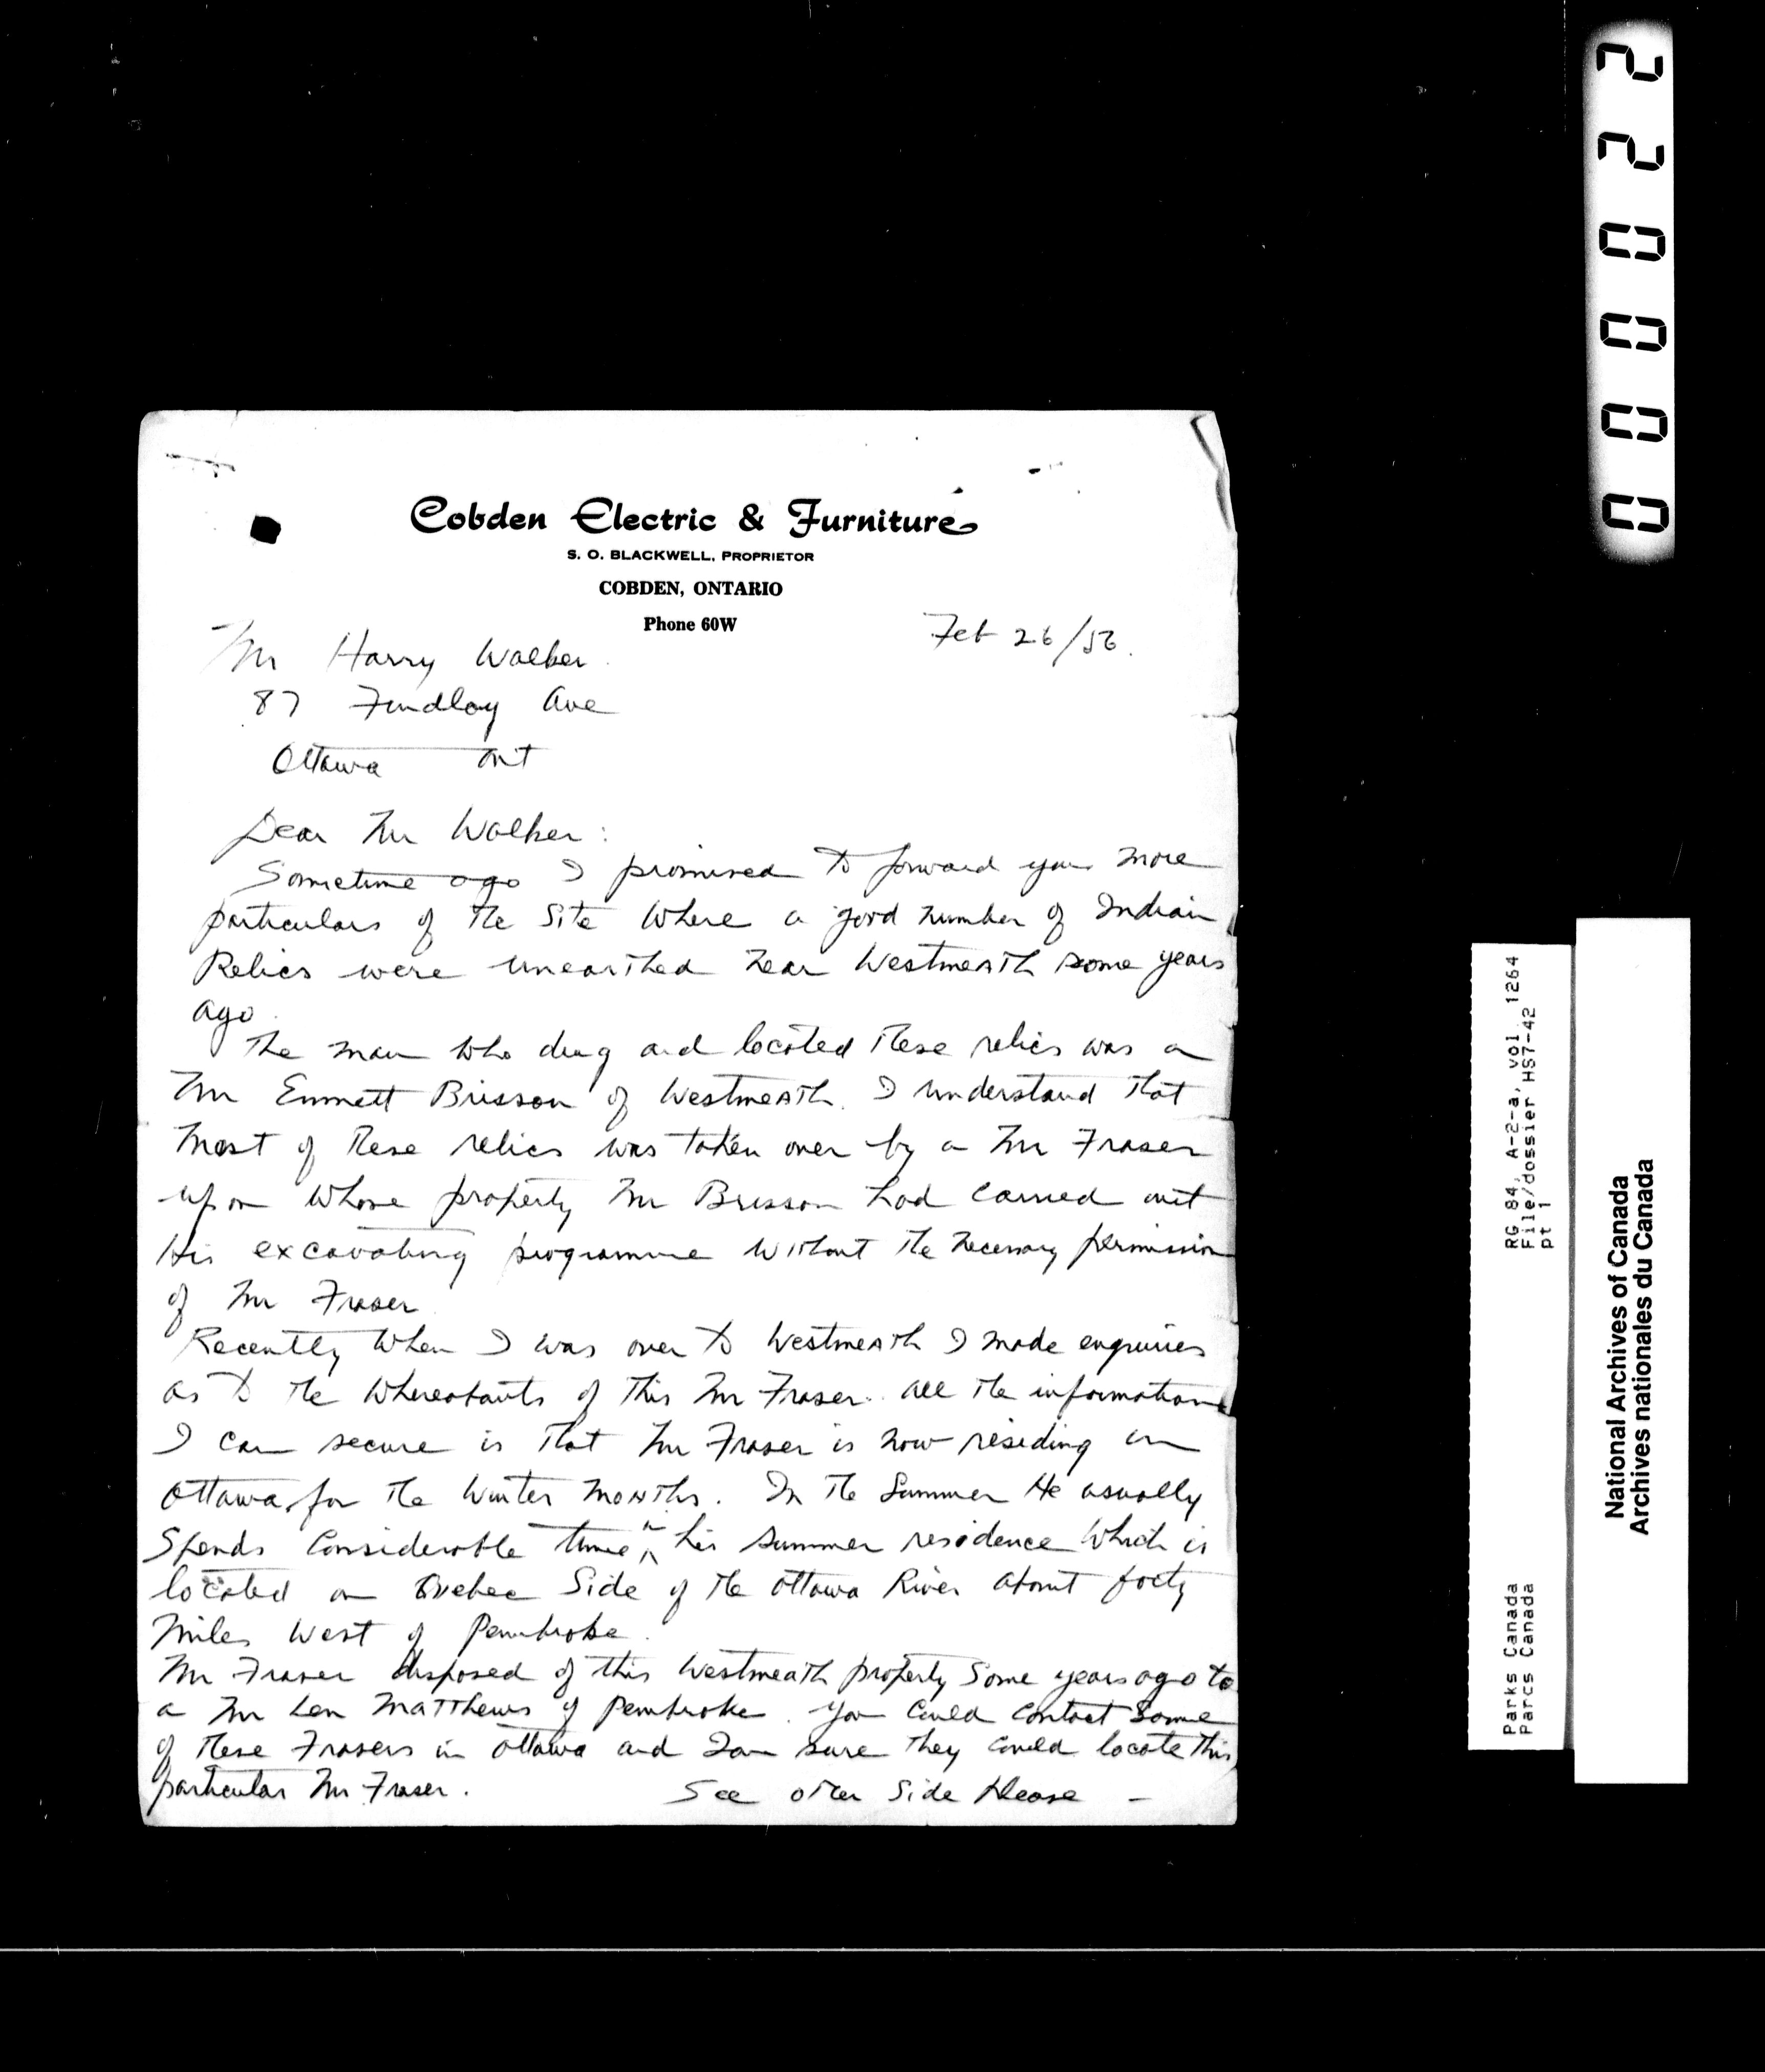 Cobden Electric & Furniture
S. O. BLACKWELL, PROPRIETOR
COBDEN, ONTARIO
Phone 60W
Feb 26/56.
Mr Harry Walker
87 Findlay Ave
Ottawa Ont
Dear Mr Walker:
Sometime ago I promised to forward you more
particulars of the Site Where a good number of Indian
Relics were unearthed near Westmeath some years
ago.
The man who dug and located these relics was a
Mr Emmett Brisson of Westmeath. I understand that
most of these relics was taken over by a Mr Fraser
upon whose property Mr Brisson had carried out
His excavating programme without the necessary permission
of Mr Fraser
Recently when I was over to Westmeath I made enquiries
as to the Whereabouts of this Mr Fraser. All the information
I can secure is that Mr Fraser is now residing in
Ottawa, for the Winter Months. In the Summer He usually
Spends Considerable time in his summer residence which is
located on Quebec Side of the Ottawa River about forty
miles West of Pembroke.
Mr Fraser disposed of this Westmeath property some years ago to
a Mr Len Matthews of Pembroke. You could contact some
of these Frasers in Ottawa and I am sure they could locate this
particular Mr Fraser.
See other side Please -
220000
RG 84, A-2-a, vol. 1264
File/dossier HS7-42
pt 1
Parks Canada
Parcs Canada
National Archives of Canada
Archives nationales du Canada